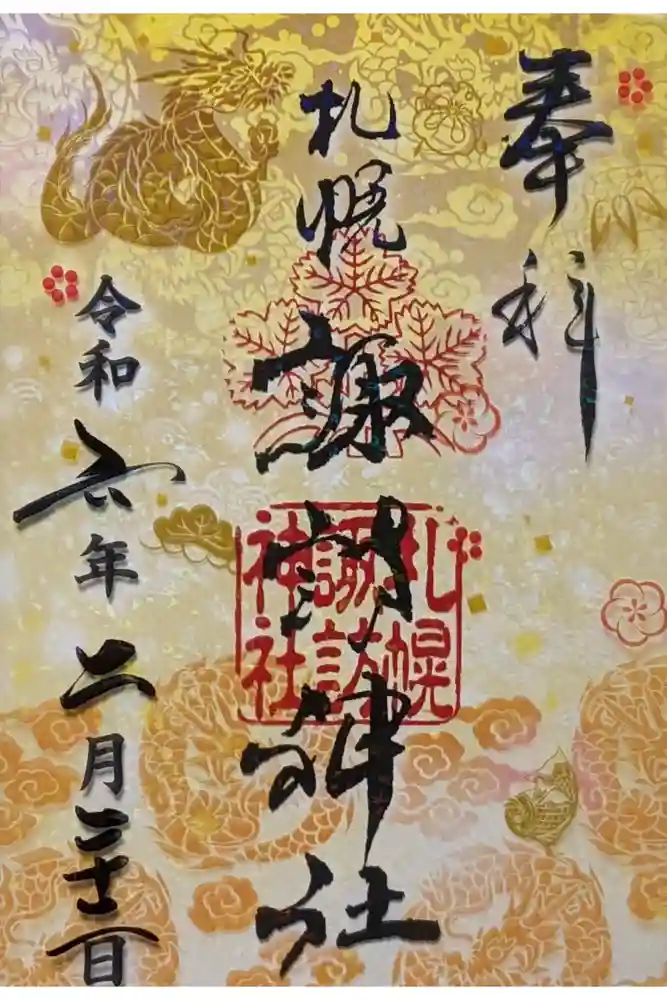 奉拝
札幌
諏訪神社
札幌
諏訪
神社
令和六年二月二十二日